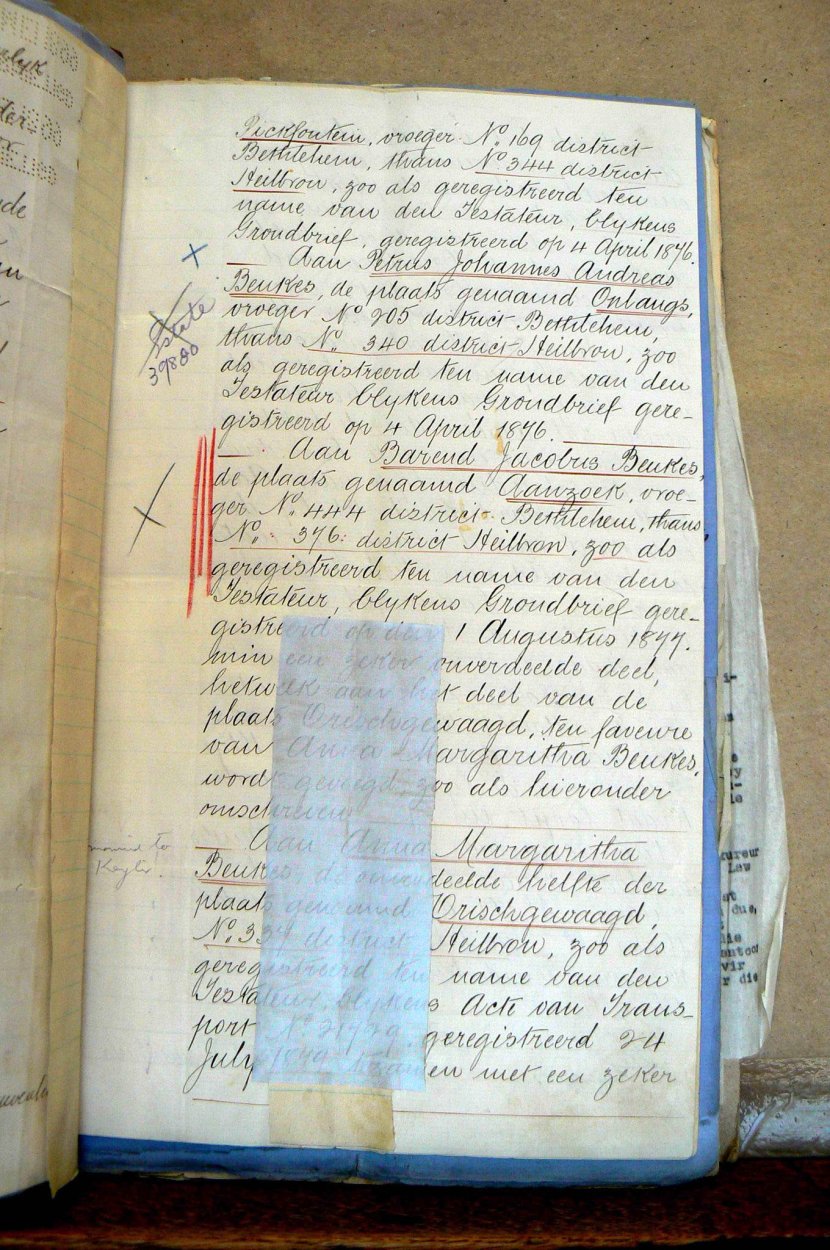 Pickfontein, vroeger N° 169 district
Bethlehem, thans N° 344 district
Heilbron, zoo als geregistreerd ten
name van den Testateur, blykens
Grondbrief, geregistreerd op 4 April 1876.
— Aan Petrus Johannes Andreas
Beukes, de plaats genaamd Onlangs,
vroeger N° 205 district Bethlehem,
thans N° 340 district Heilbron, zoo
als geregistreerd ten name van den
Testateur blykens Grondbrief gere-
gistreerd op 4 April 1876.
— Aan Barend Jacobus Beukes,
de plaats genaamd Aanzoek, vroe-
ger N° 444 district Bethlehem, thans
N° 376: district Heilbron, zoo als
geregistreerd ten name van den
Testateur, blykens Grondbrief gere-
gistreerd op den 1 Augustus 1877.
min een zeker onverdeelde deel,
hetwelk aan het deel van de
plaats Vrischgewaagd, ten faveure
van Anna Margaritha Beukes,
wordt gevoegd, zoo als hieronder
omschreven
— Aan Anna Margaritha
Beukes de onverdeelde helfte der
plaats genaamd Vrischgewaagd,
N° 337 district Heilbron, zoo als
geregistreerd ten name van den
Testateur, blykens Acte van Trans-
port N° geregistreerd 24
July met een zeker
x
Estate
39880
X
married to